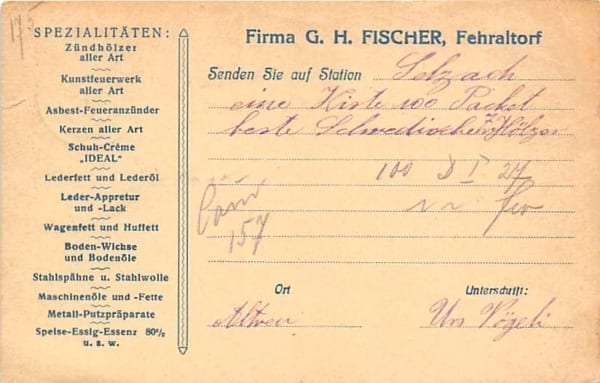 175
SPEZIALITÄTEN:
Zündhölzer
aller Art
Kunstfeuerwerk
aller Art
Asbest-Feueranzünder
Kerzen aller Art
Schuh-Crème
„IDEAL"
Lederfett und Lederöl
Leder-Appretur
und -Lack
Wagenfett und Huffett
Boden-Wichse
und Bodenöle
Stahlspähne u. Stahlwolle
Maschinenöle und -Fette
Metall-Putzpräparate
Speise-Essig-Essenz 80%
u. s. w.
Firma G. H. FISCHER, Fehraltorf
Senden Sie auf Station Selzach
eine Kiste 100 Packet
beste Schwedische
100 D I 27
157
Ort
Unterschrift:
Urs Vögeli